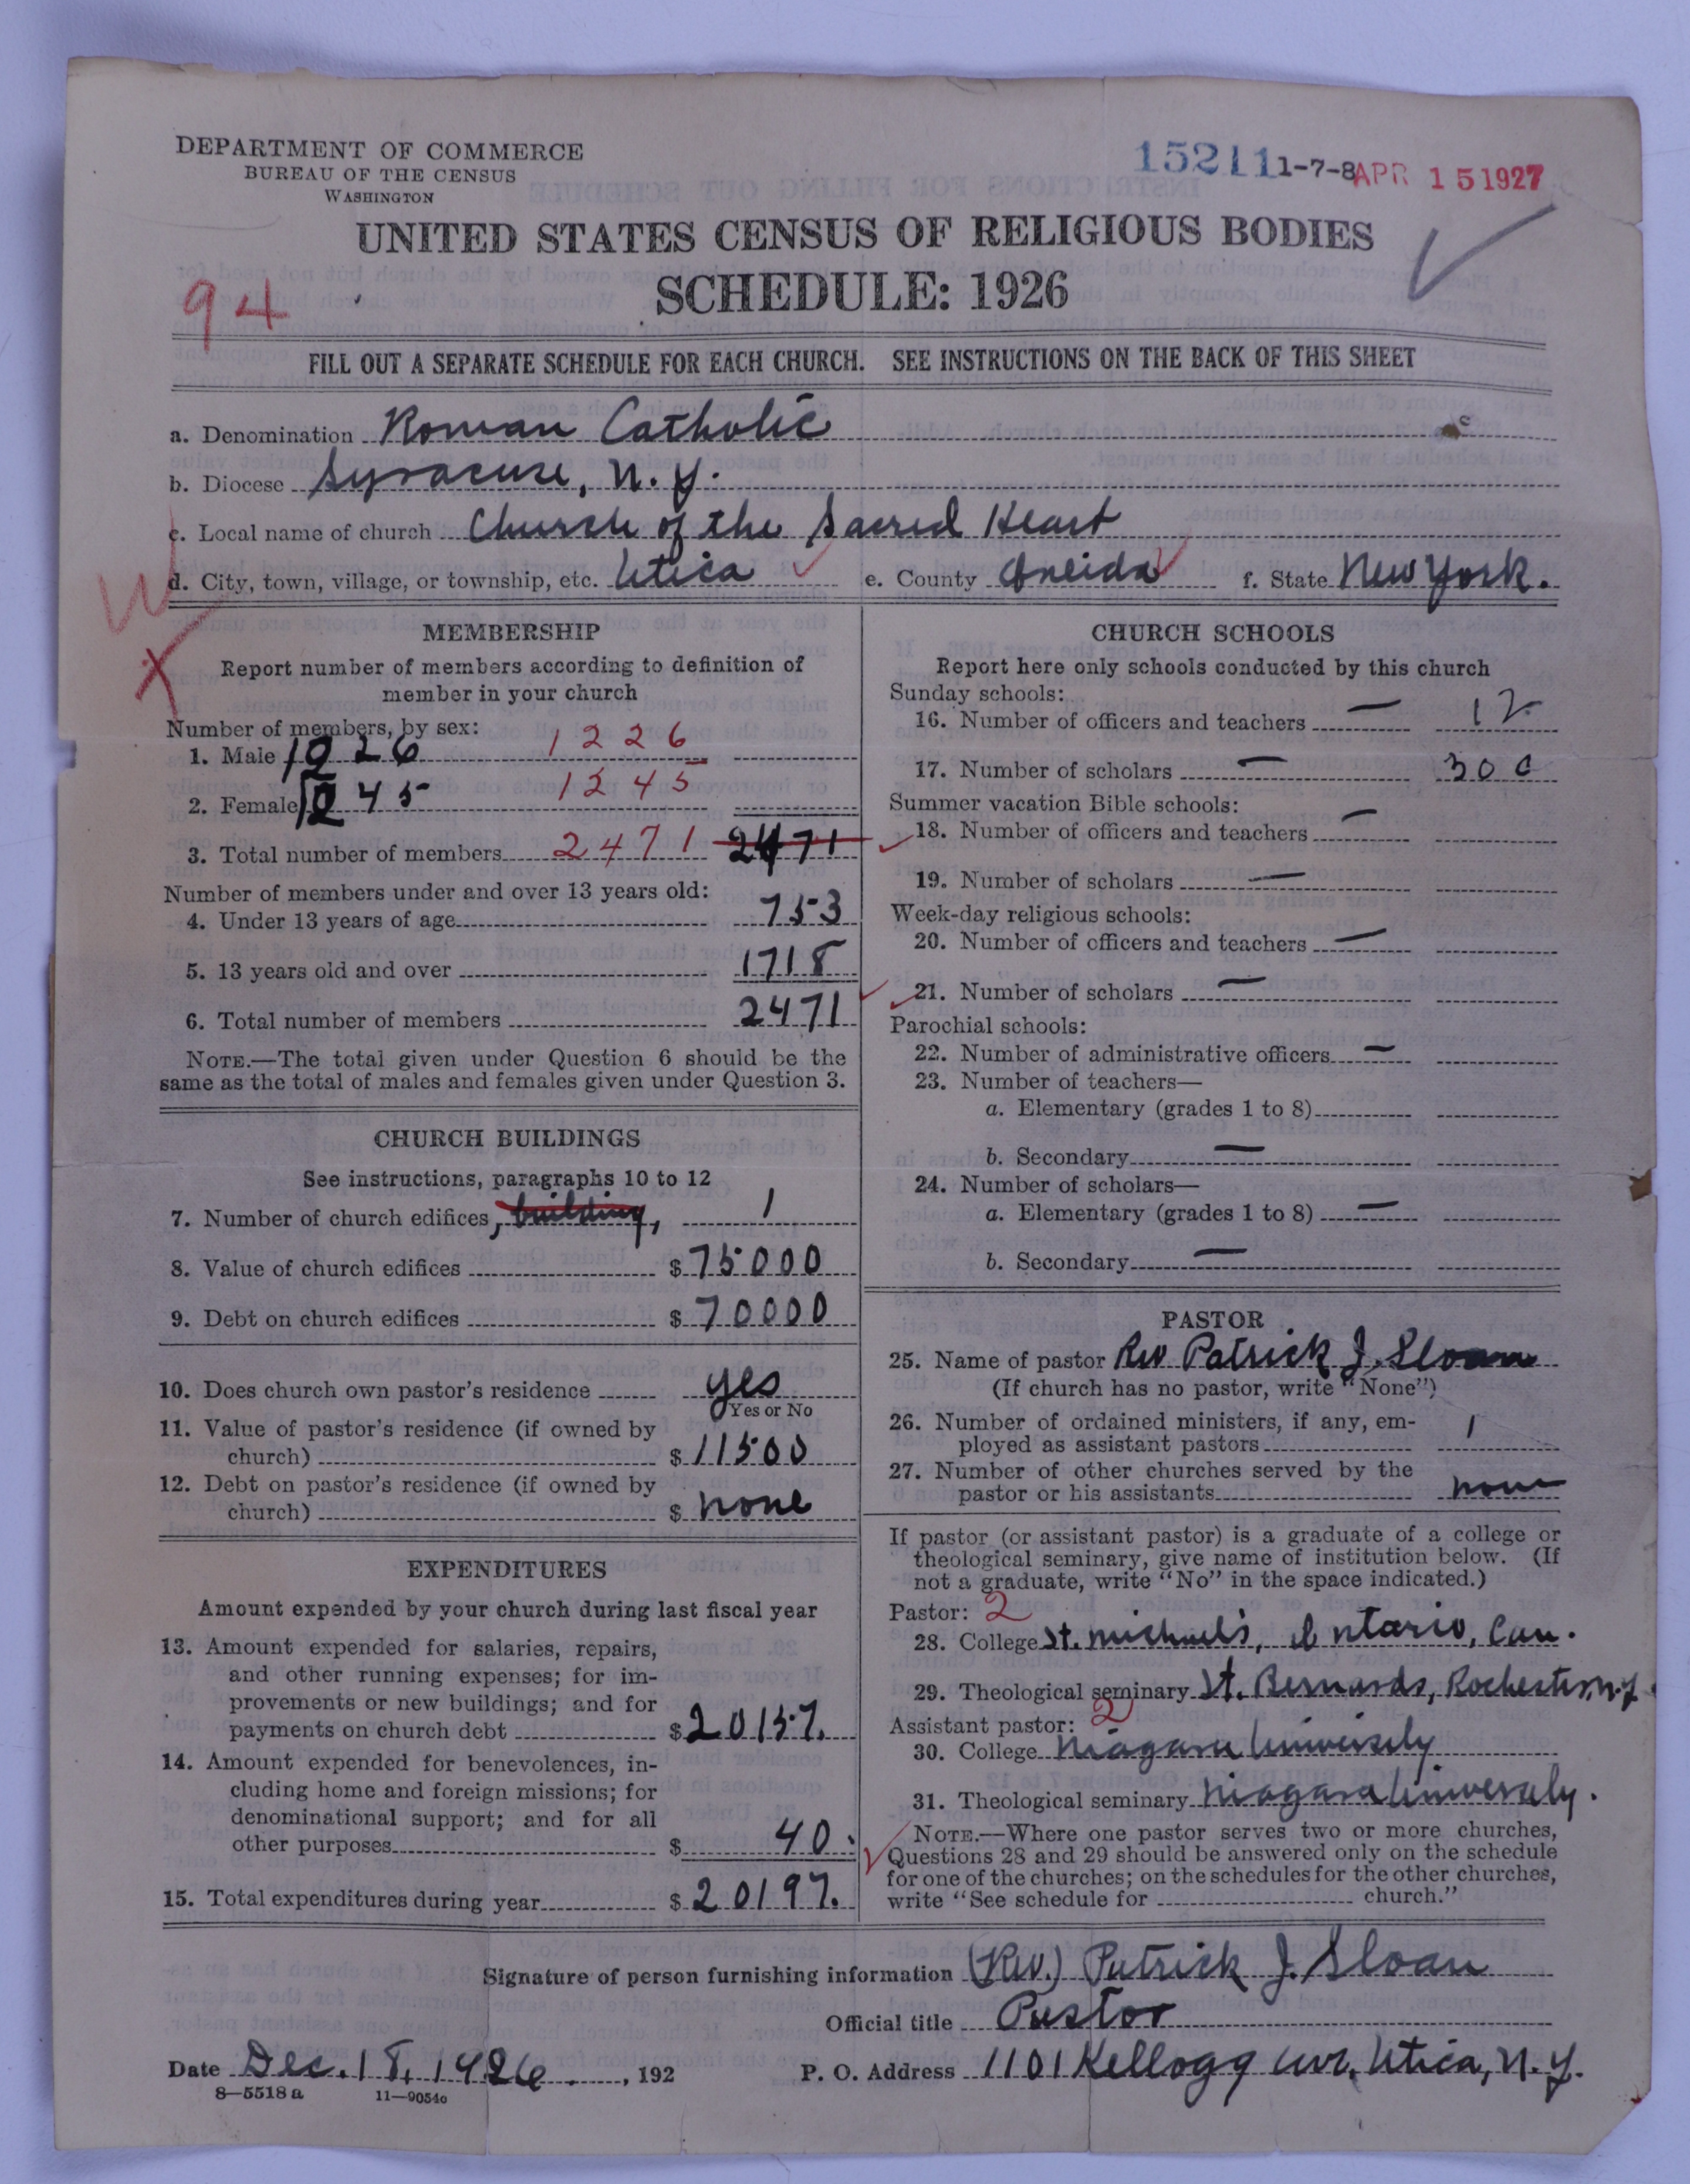 DEPARTMENT OF COMMERCE
BUREAU OF THE CENSUS
WASHINGTON
15211 1-7-8 APR 15 1927
UNITED STATES CENSUS OF RELIGIOUS BODIES
SCHEDULE: 1926
94
FILL OUT A SEPARATE SCHEDULE FOR EACH CHURCH. SEE INSTRUCTIONS ON THE BACK OF THIS SHEET
a. Denomination Roman Catholic
b. Diocese Syracuse, N.Y.
c. Local name of church Church of the Sacred Heart
d. City, town, village, or township, etc. Utica e. County Oneida f. State New York.
MEMBERSHIP
Report number of members according to definition of
member in your church
Number of members, by sex:
1. Male 1226
2. Female 1245
3. Total number of members 2471 2471
Number of members under and over 13 years old:
4. Under 13 years of age 753
5. 13 years old and over 1718
6. Total number of members 2471
NOTE.—The total given under Question 6 should be the
same as the total of males and females given under Question 3.
CHURCH BUILDINGS
See instructions, paragraphs 10 to 12
7. Number of church edifices, building, 1
8. Value of church edifices $75000
9. Debt on church edifices $70000
10. Does church own pastor's residence yes
Yes or No
11. Value of pastor's residence (if owned by
church) $11500
12. Debt on pastor's residence (if owned by
church) $ none
EXPENDITURES
Amount expended by your church during last fiscal year
13. Amount expended for salaries, repairs,
and other running expenses; for im-
provements or new buildings; and for
payments on church debt $20157.
14. Amount expended for benevolences, in-
cluding home and foreign missions; for
denominational support; and for all
other purposes $40.
15. Total expenditures during year $20197.
CHURCH SCHOOLS
Report here only schools conducted by this church
Sunday schools:
16. Number of officers and teachers — 12
17. Number of scholars — 300
Summer vacation Bible schools:
18. Number of officers and teachers —
19. Number of scholars —
Week-day religious schools:
20. Number of officers and teachers —
21. Number of scholars —
Parochial schools:
22. Number of administrative officers —
23. Number of teachers—
a. Elementary (grades 1 to 8)
b. Secondary —
24. Number of scholars—
a. Elementary (grades 1 to 8) —
b. Secondary —
PASTOR
25. Name of pastor Rev Patrick J. Sloan
(If church has no pastor, write "None")
26. Number of ordained ministers, if any, em-
ployed as assistant pastors 1
27. Number of other churches served by the
pastor or his assistants none
If pastor (or assistant pastor) is a graduate of a college or
theological seminary, give name of institution below. (If
not a graduate, write "No" in the space indicated.)
Pastor: 2
28. College St. Michael's, Ontario, Can.
29. Theological seminary St. Bernards, Rochester, N.Y.
Assistant pastor: 2
30. College Niagara University
31. Theological seminary Niagara University.
NOTE.—Where one pastor serves two or more churches,
Questions 28 and 29 should be answered only on the schedule
for one of the churches; on the schedules for the other churches,
write "See schedule for church."
Signature of person furnishing information (Rev.) Patrick J. Sloan
Official title Pastor
Date Dec. 18, 1926., 192 P. O. Address 1101 Kellogg ave. Utica, N.Y.
8—5518 a 11—9054c